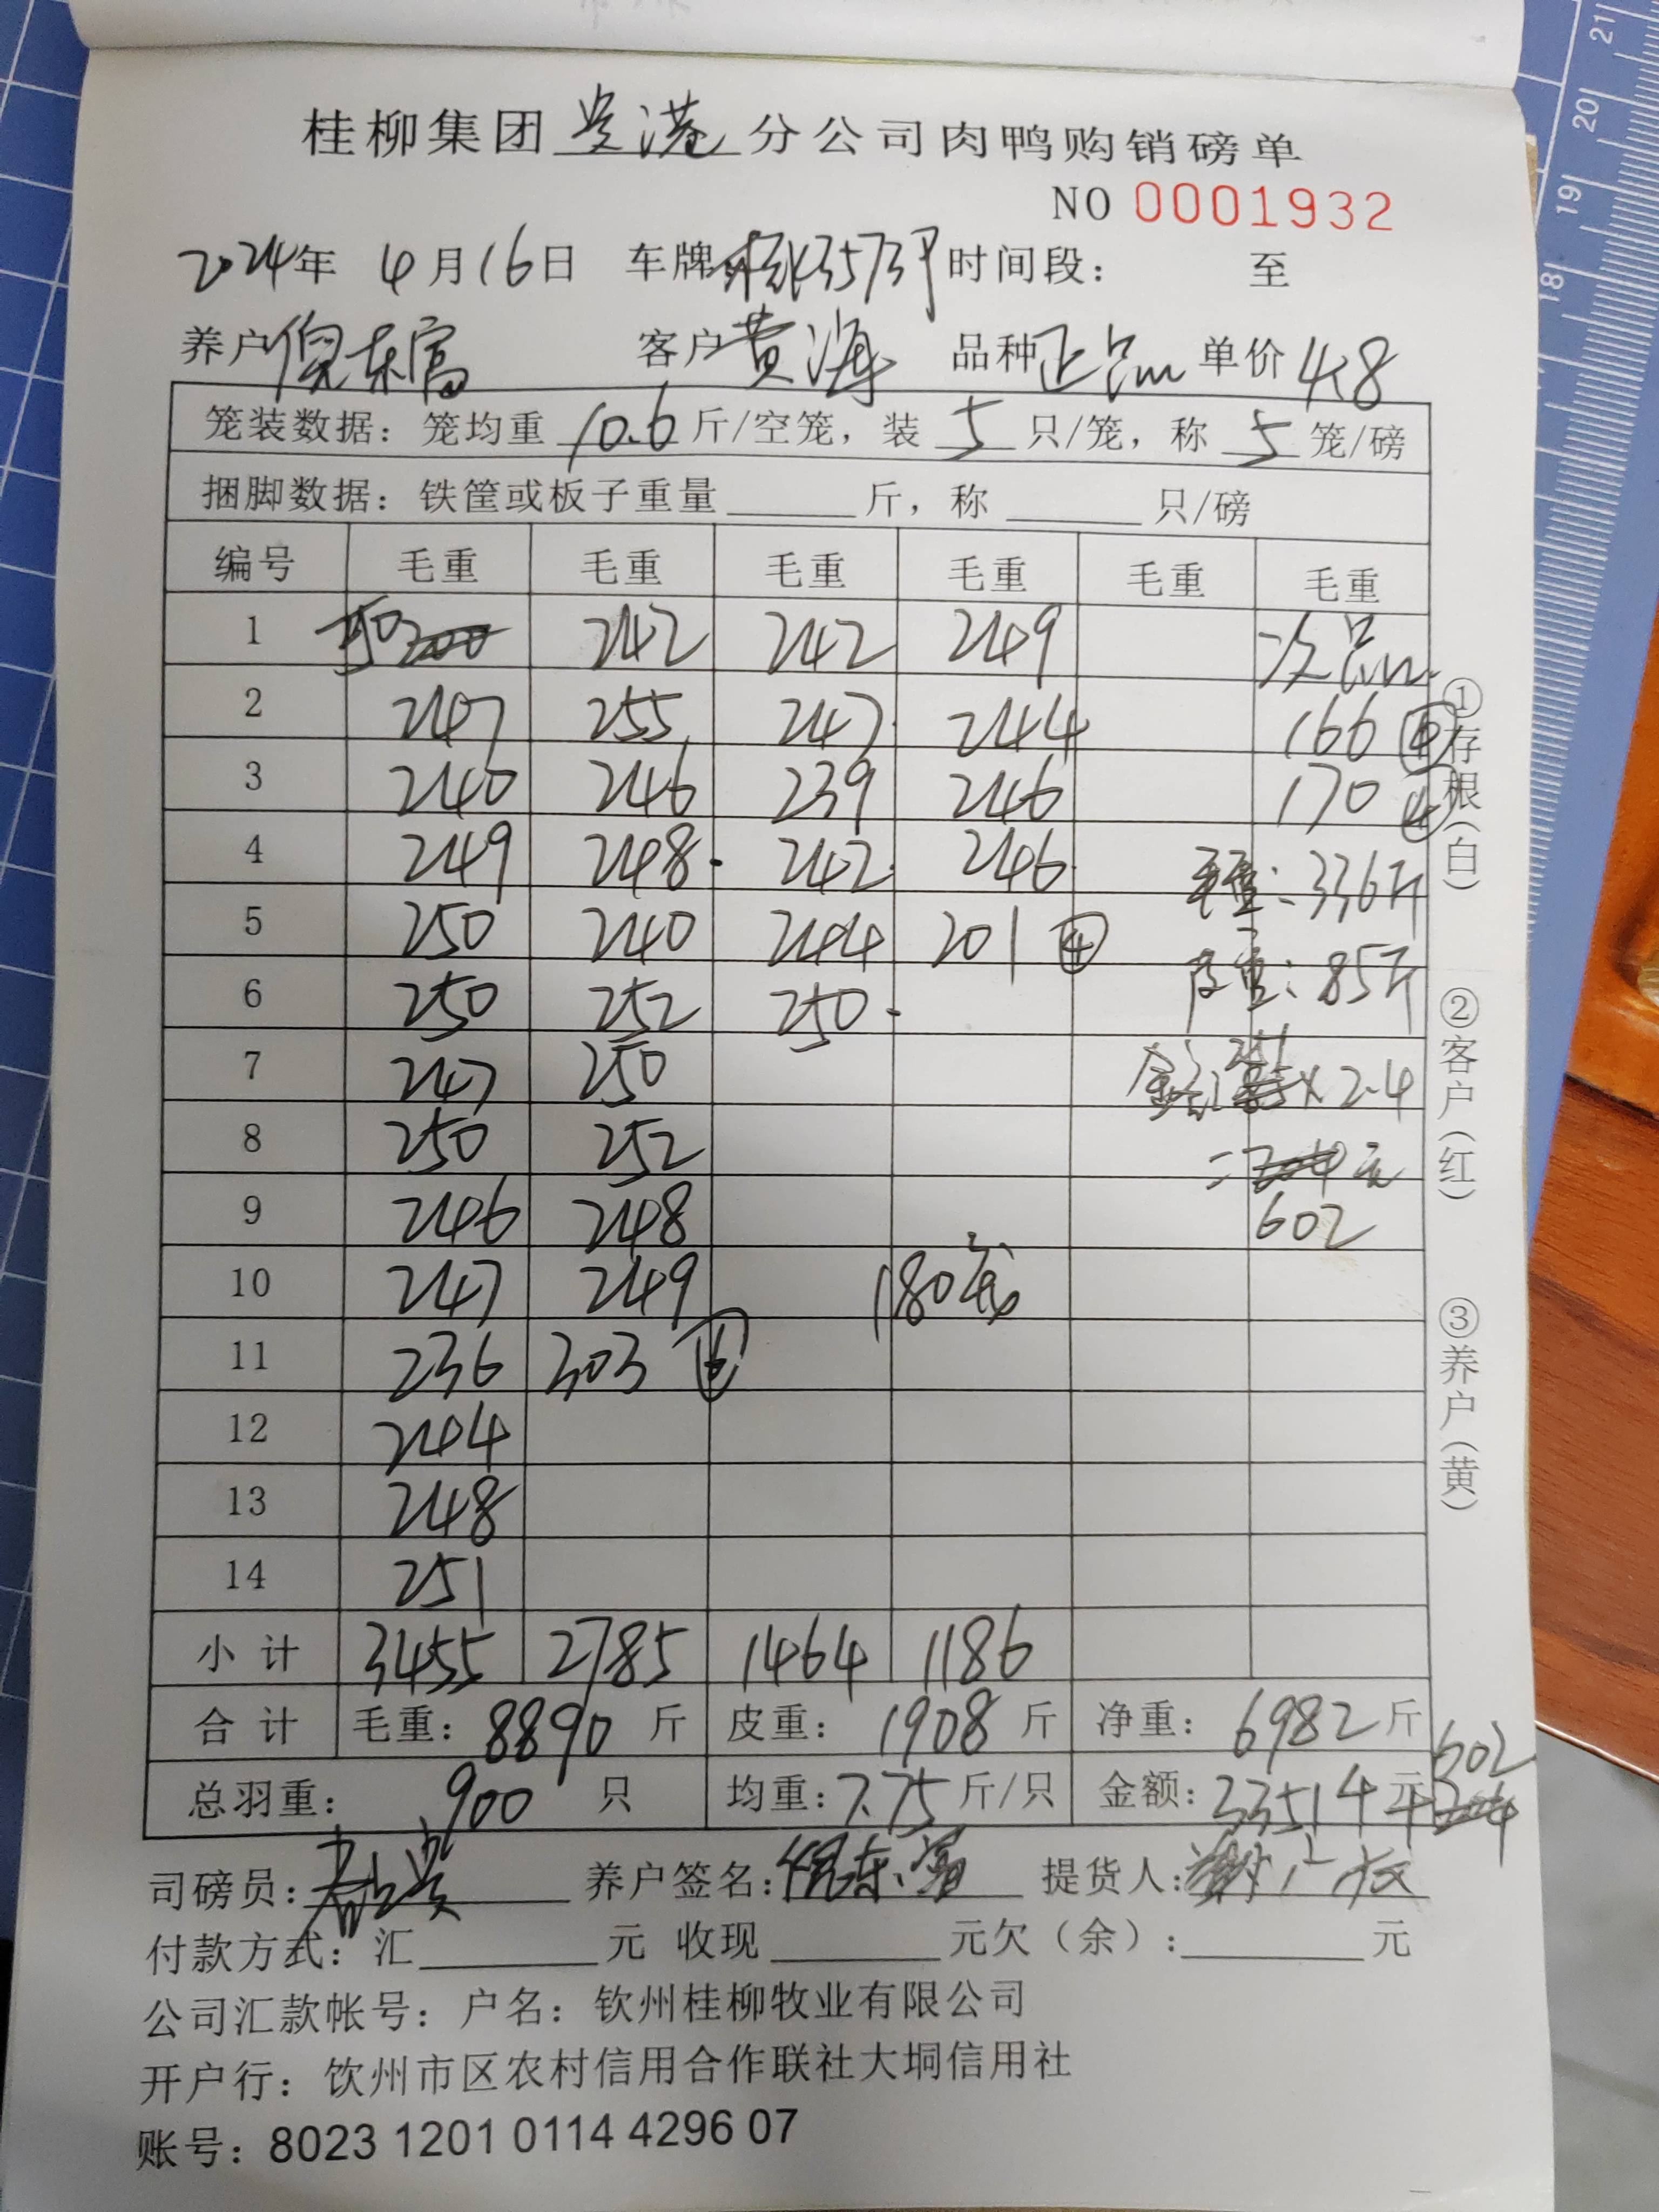 桂柳集团贵港分公司肉鸭购销磅单
NO 0001932
2024年 4月16日 车牌 时间段: 至
养户倪东富 客户黄海 品种正品 单价4.8
笼装数据: 笼均重 10.6 斤/空笼, 装 5 只/笼, 称 5 笼/磅
捆脚数据: 铁筐或板子重量 斤, 称 只/磅
编号 毛重 毛重 毛重 毛重 毛重 毛重
1 250 200 242 242 249 次品
2 247 255 247 244 166 ④
3 240 246 239 246 170 ④
4 249 248 242 246 毛重: 336斤
5 250 240 244 201 ④ 皮重: 85斤
6 250 252 250
7 247 250 金额: 251×2.4
8 250 252 = 元
9 246 248 602
10 247 249 180笼
11 236 303 ⑥
12 244
13 248
14 251
小计 3455 2785 1464 1186
合计 毛重: 8890 斤 皮重: 1908 斤 净重: 6982 斤
总羽重: 900 只 均重: 7.75 斤/只 金额: 33514 元 602
司磅员: 养户签名: 倪东富 提货人:
付款方式: 汇 元 收现 元欠(余): 元
公司汇款帐号: 户名: 钦州桂柳牧业有限公司
开户行: 饮州市区农村信用合作联社大垌信用社
账号: 8023 1201 0114 4296 07
①存根(白)
②客户(红)
③养户(黄)
21
20
19
18